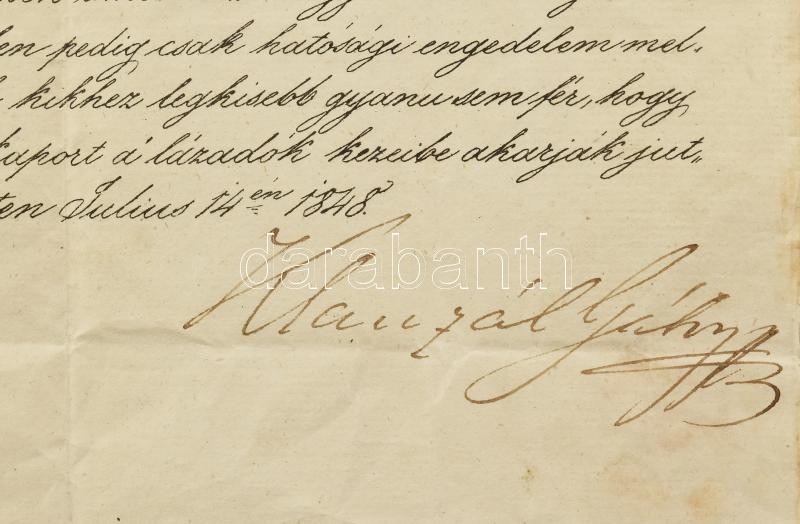 len pedig csak hatósági engedelem mel„
kikhez legkisebb gyanu sem fér, hogy
kaport á lázadók kezeibe akarják jut„
ten Julius 14én 1848.
darabanth
Klauzál Gábor